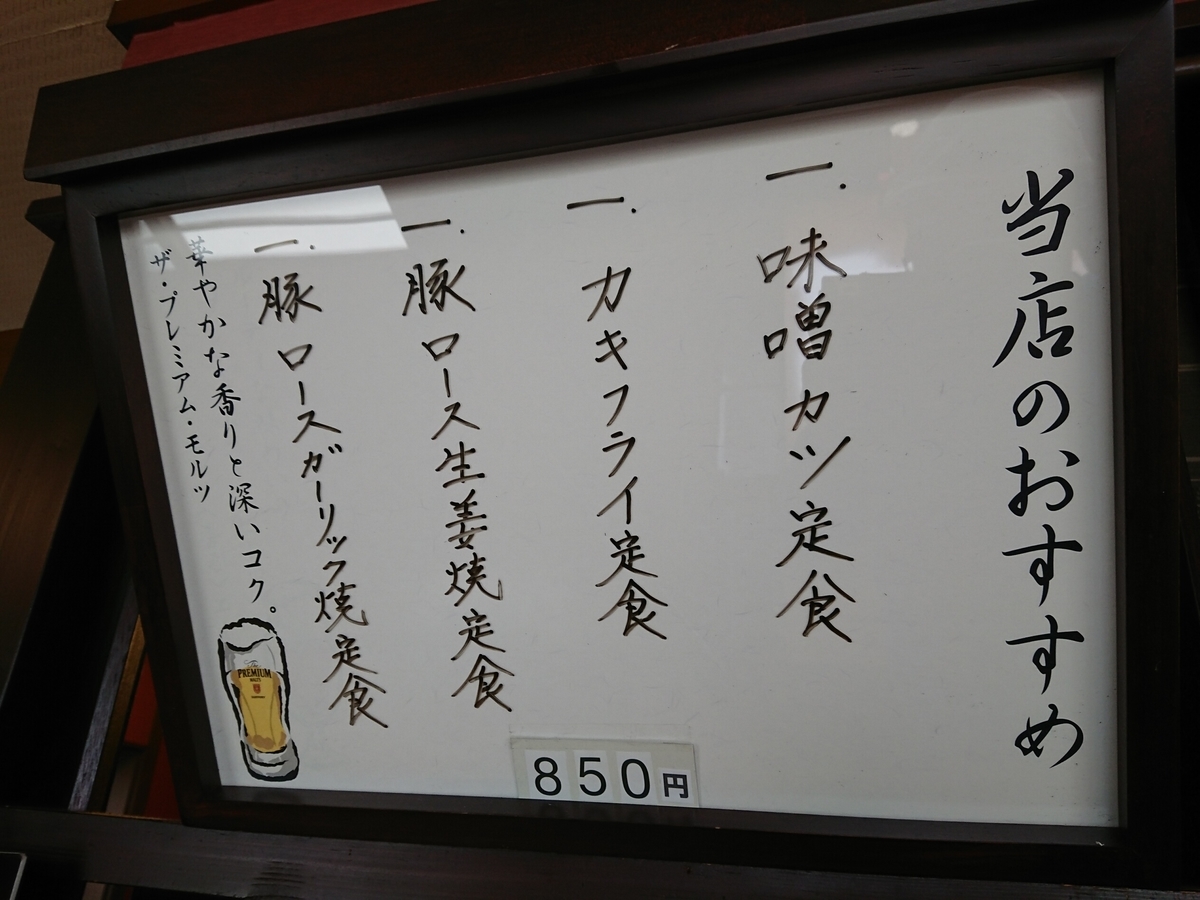 当店のおすすめ
一. 味噌カツ定食
一. カキフライ定食
一. 豚ロース生姜焼定食
一. 豚ロースガーリック焼定食
華やかな香りと深いコク。
ザ・プレミアム・モルツ
The PREMIUM MALT'S
850円